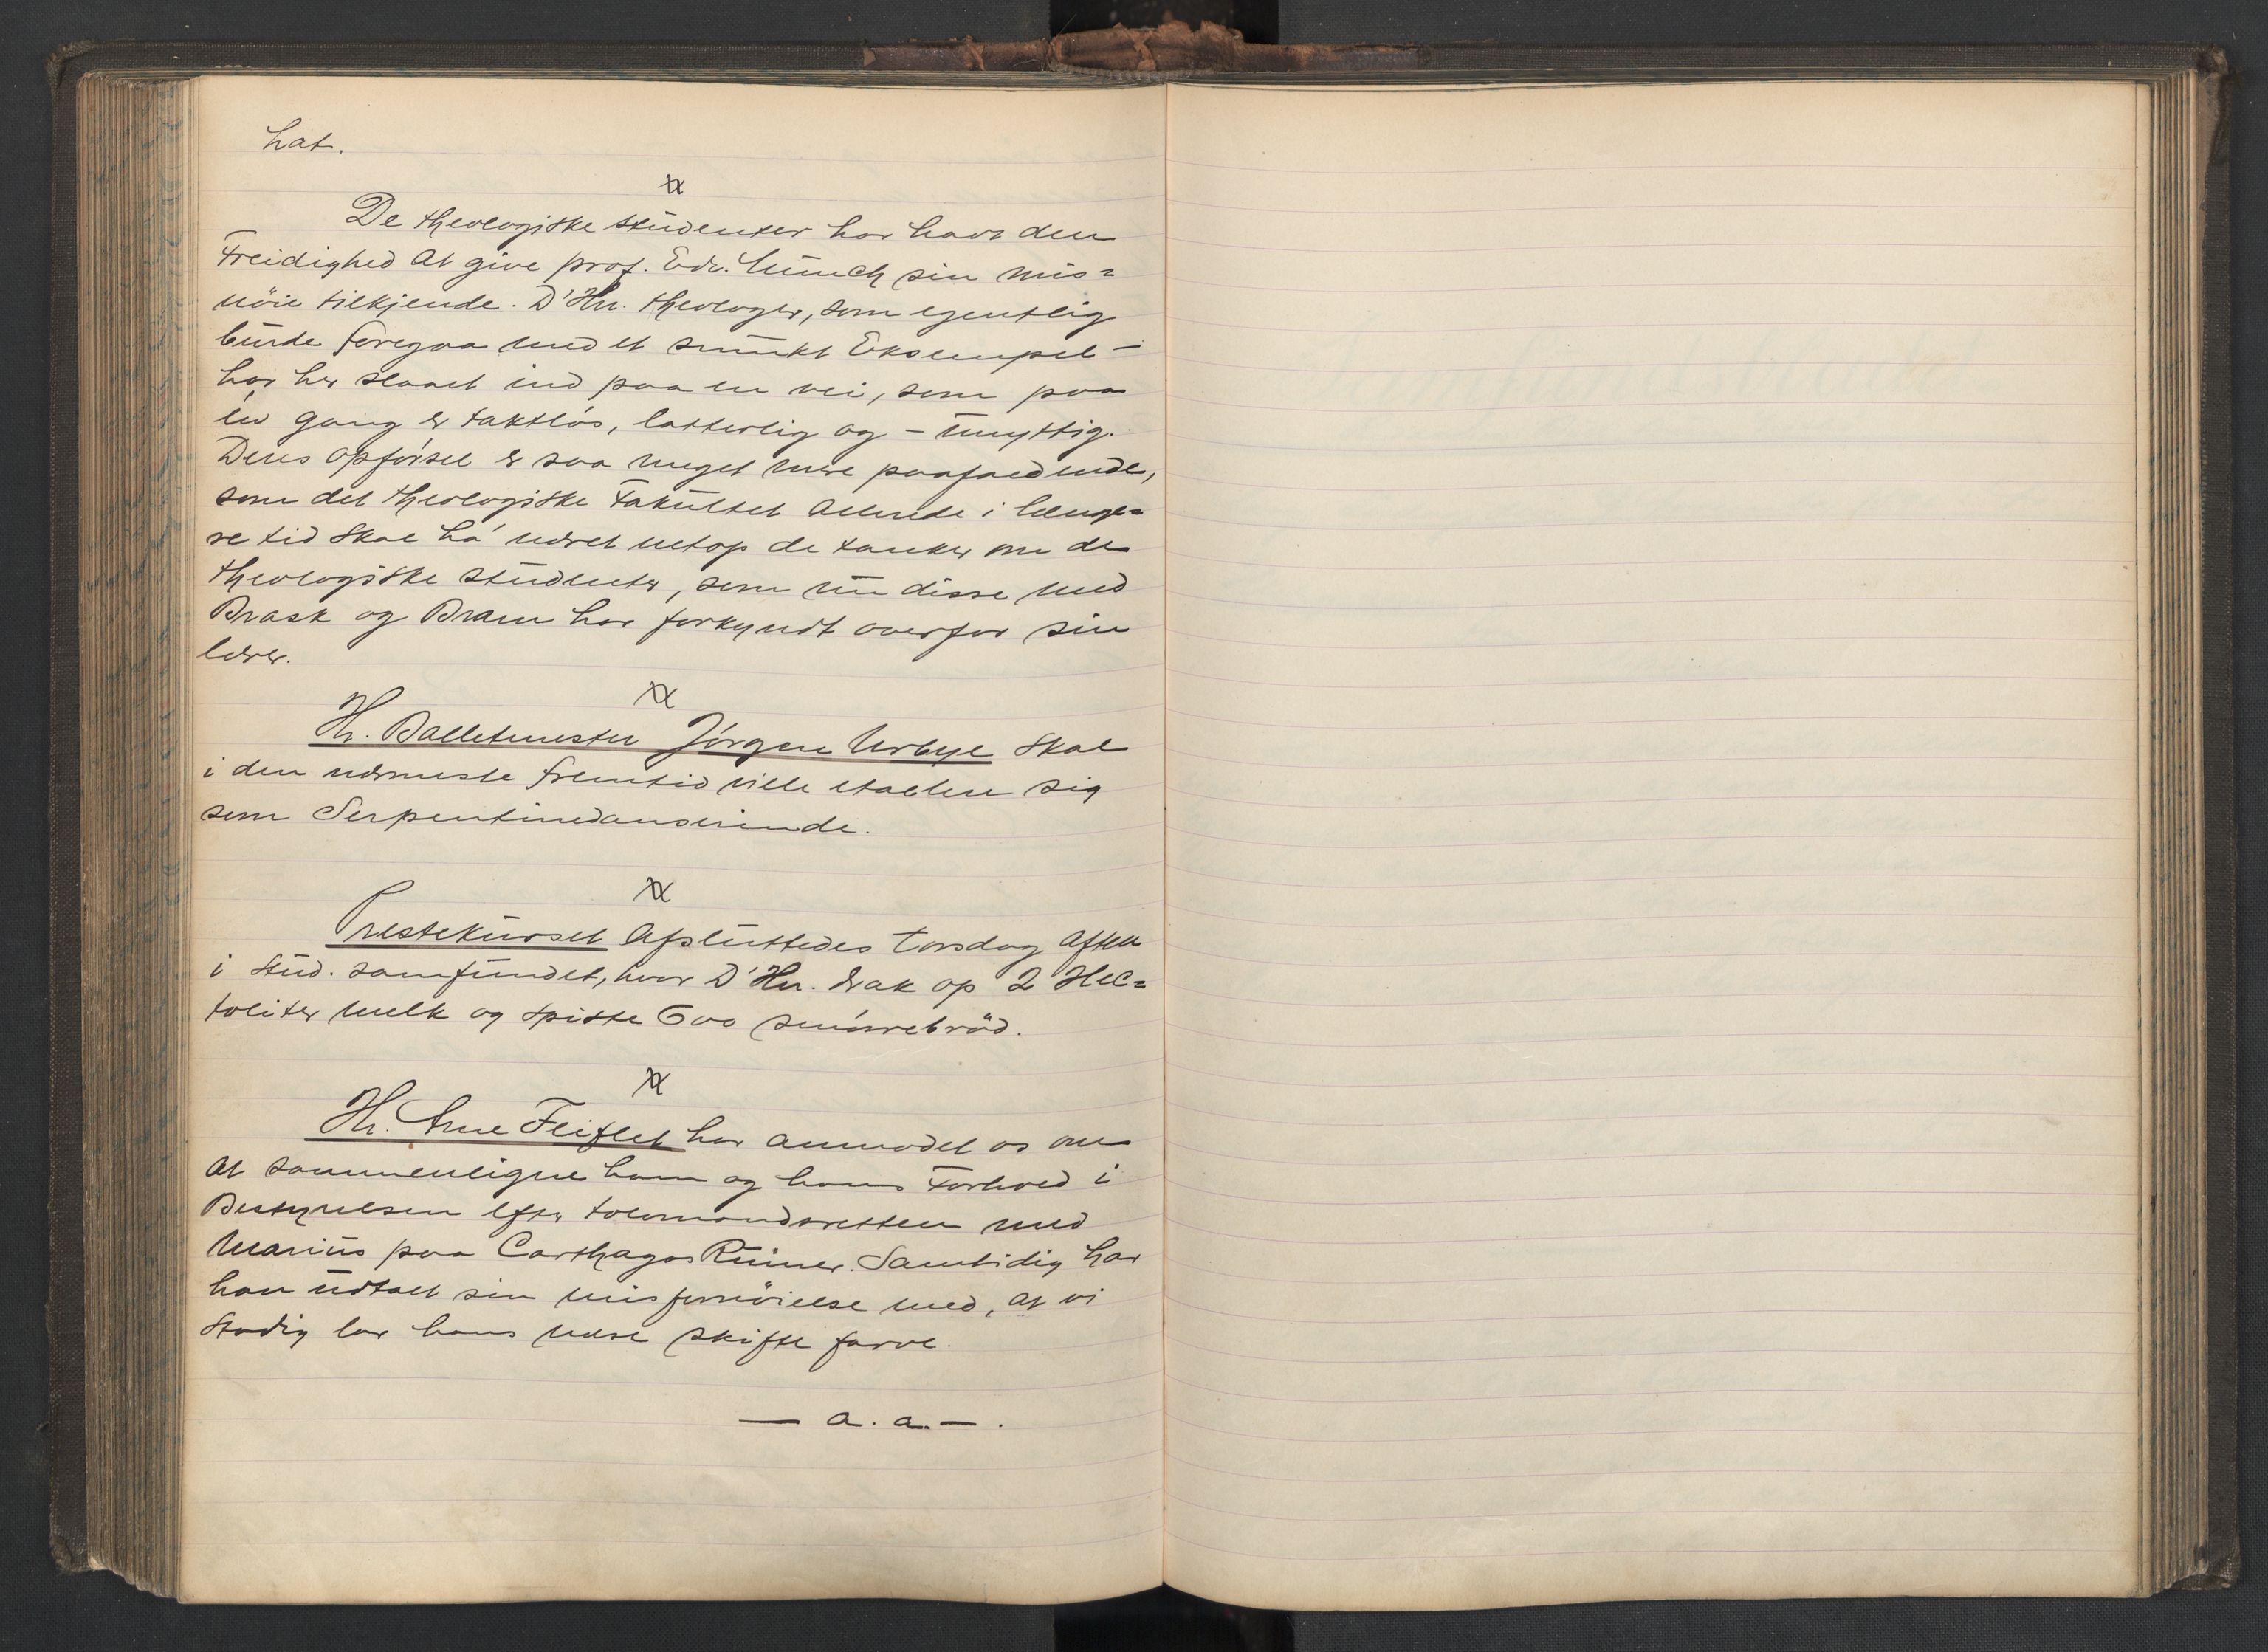 hat.
De theologiske studenter har havt den
Freidighed at give prof. Edv. Münch sin mis=
nöie tilkjende. D'Hrr. theologer, som egentlig
burde foregaa med et smukt Eksempel –
har her slaaet ind paa en vei, som paa
én gang er taktlös, latterlig og – unyttig.
Deres opförsel er saa meget mere paafaldende,
som det theologiske Fakultet allerede i længe=
re tid skal ha' næret netop de tanker om de
theologiske studenter, som nu disse med
Brask og Bram har forkyndt overfor sin
lærer.
Hr. Balletmester Jörgen Urbye skal
i den nærmeste fremtid ville etablere sig
som Serpentinedanserinde.
Prestekurset afsluttedes torsdag aften
i Stud. samfundet, hvor D'Hrr. drak op 2 Hec=
toliter melk og spiste 600 smörrebröd.
Hr. Arne Fleiflet har anmodet os om
at sammenligne ham og hans Forhold i
Bestyrelsen efter tolvmandsretten med
Marius paa Carthagos Ruiner. Samtidig har
han udtalt sin misfornöielse med, at vi
stadig lar hans næse skifte farve.
— a. a. — .